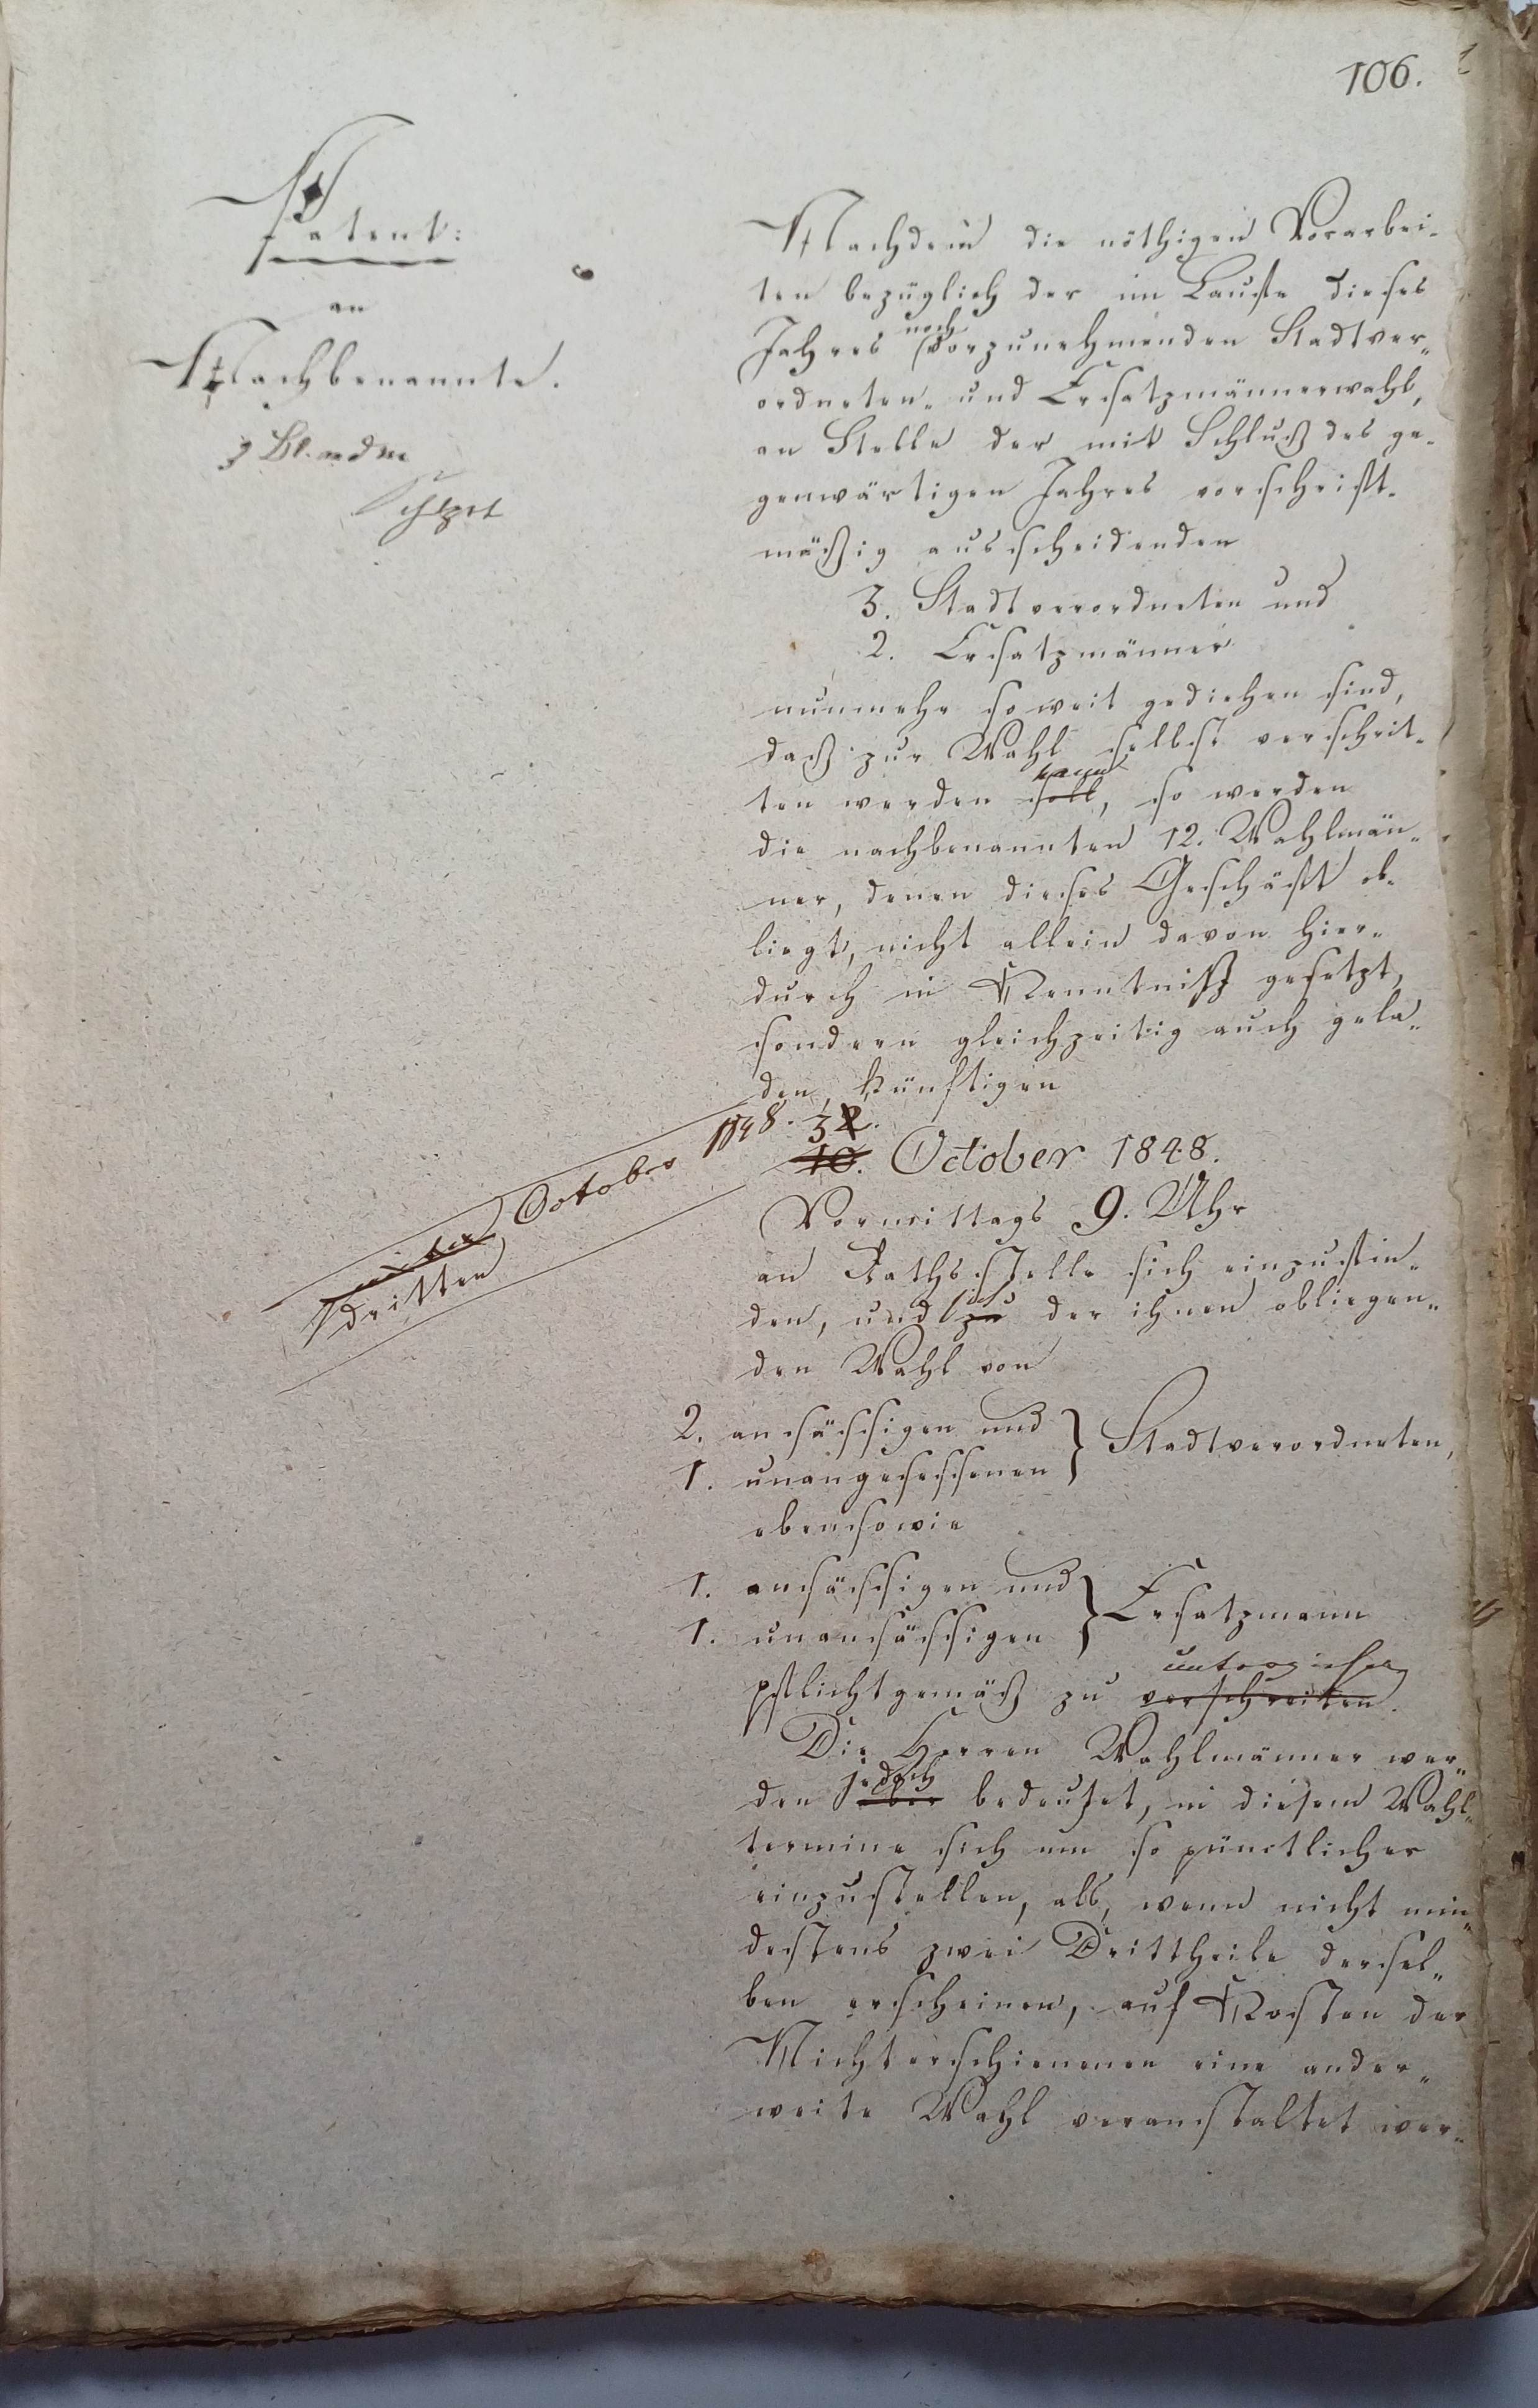 106.
Patent:
an
Nachbenannte.
Nachdem die nöthigen Vorarbei-
ten bezüglich der im Laufe dieses
Jahres noch vorzunehmenden Stadtver-
ordneten- und Ersatzmännerwahl,
an Stelle der mit Schluß des ge-
genwärtigen Jahres vorschrift-
mäßig ausscheidenden
3. Stadtverordneten und
2. Ersatzmänner
nunmehr so weit gediehen sind,
daß zur Wahl selbst verschrit-
ten werden soll kann, so werden
die nachbenannten 12. Wahlmän-
ner, denen dieses Geschäft ob-
liegt, nicht allein davon hier-
durch in Kenntniß gesetzt,
sondern gleichzeitig auch gela-
den, künftigen
dritten October 1848.
10. 3. October 1848.
Vormittags 9. Uhr
an Rathsstelle sich einzufin-
den, und zu sich der ihnen obliegen-
den Wahl von
2. ansässigen und
1. unangesessenen } Stadtverordneten,
ebensowie
1. ansässigen und
1. unansässigen } Ersatzmann
pflichtgemäß zu verschreiten unterziehen.
Die Herren Wahlmänner wer-
den aber jedoch bedeutet, in diesem Wahl-
termine sich um so pünctlicher
einzustellen, als, wenn nicht min-
destens zwei Drittheile dersel-
ben erscheinen, auf Kosten der
Nichterschienenen eine ander-
weite Wahl veranstaltet wer-